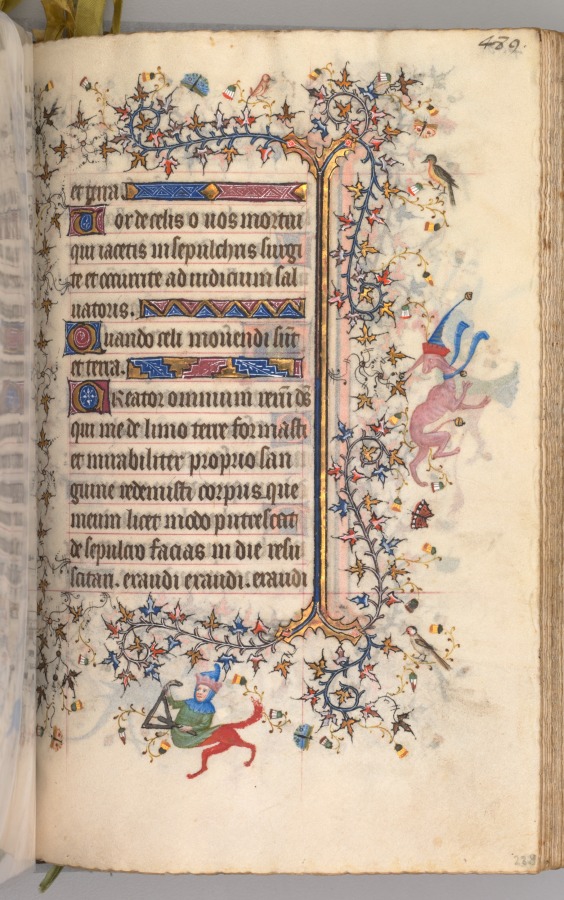 489.
et terra.
Vox de celis o uos mortui
qui iacetis in sepulchris surgi
te et occurrite ad iudicium sal
uatoris.
Quando celi mouendi sūt
et terra.
Creator omnium rerū ds̄
qui me de limo terre formasti
et mirabiliter proprio san
guine redemisti corpus que
meum licet modo putrescat
de sepulcro facias in die resu
scitari. exaudi exaudi. exaudi